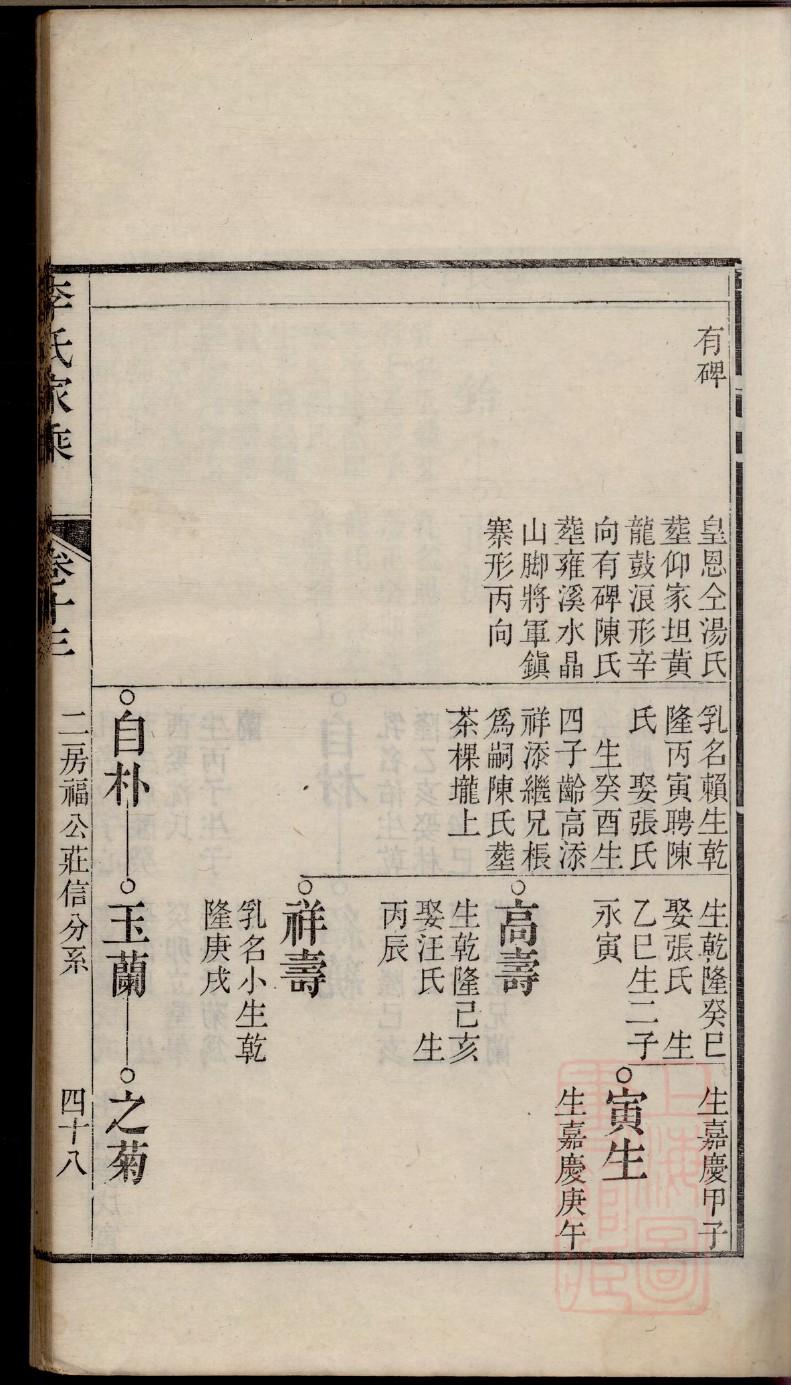 有碑
皇恩仝湯氏
塟仰家坦黃
龍鼓浪形辛
向有碑陳氏
塟雍溪水晶
山脚將軍鎮
寨形丙向
乳名賴生乾
隆丙寅聘陳
氏 娶張氏
生癸酉生
四子齡高添
祥添繼兄桭
爲嗣陳氏塟
茶棵壠上
生乾隆癸巳
娶張氏 生
乙巳生二子
永寅
高壽
生乾隆己亥
娶汪氏 生
丙辰
祥壽
乳名小生乾
隆庚戌
生嘉慶甲子
寅生
生嘉慶庚午
自朴
玉蘭
之菊
李氏家乘
卷十三
二房福公莊信分系
四十八
上海圖